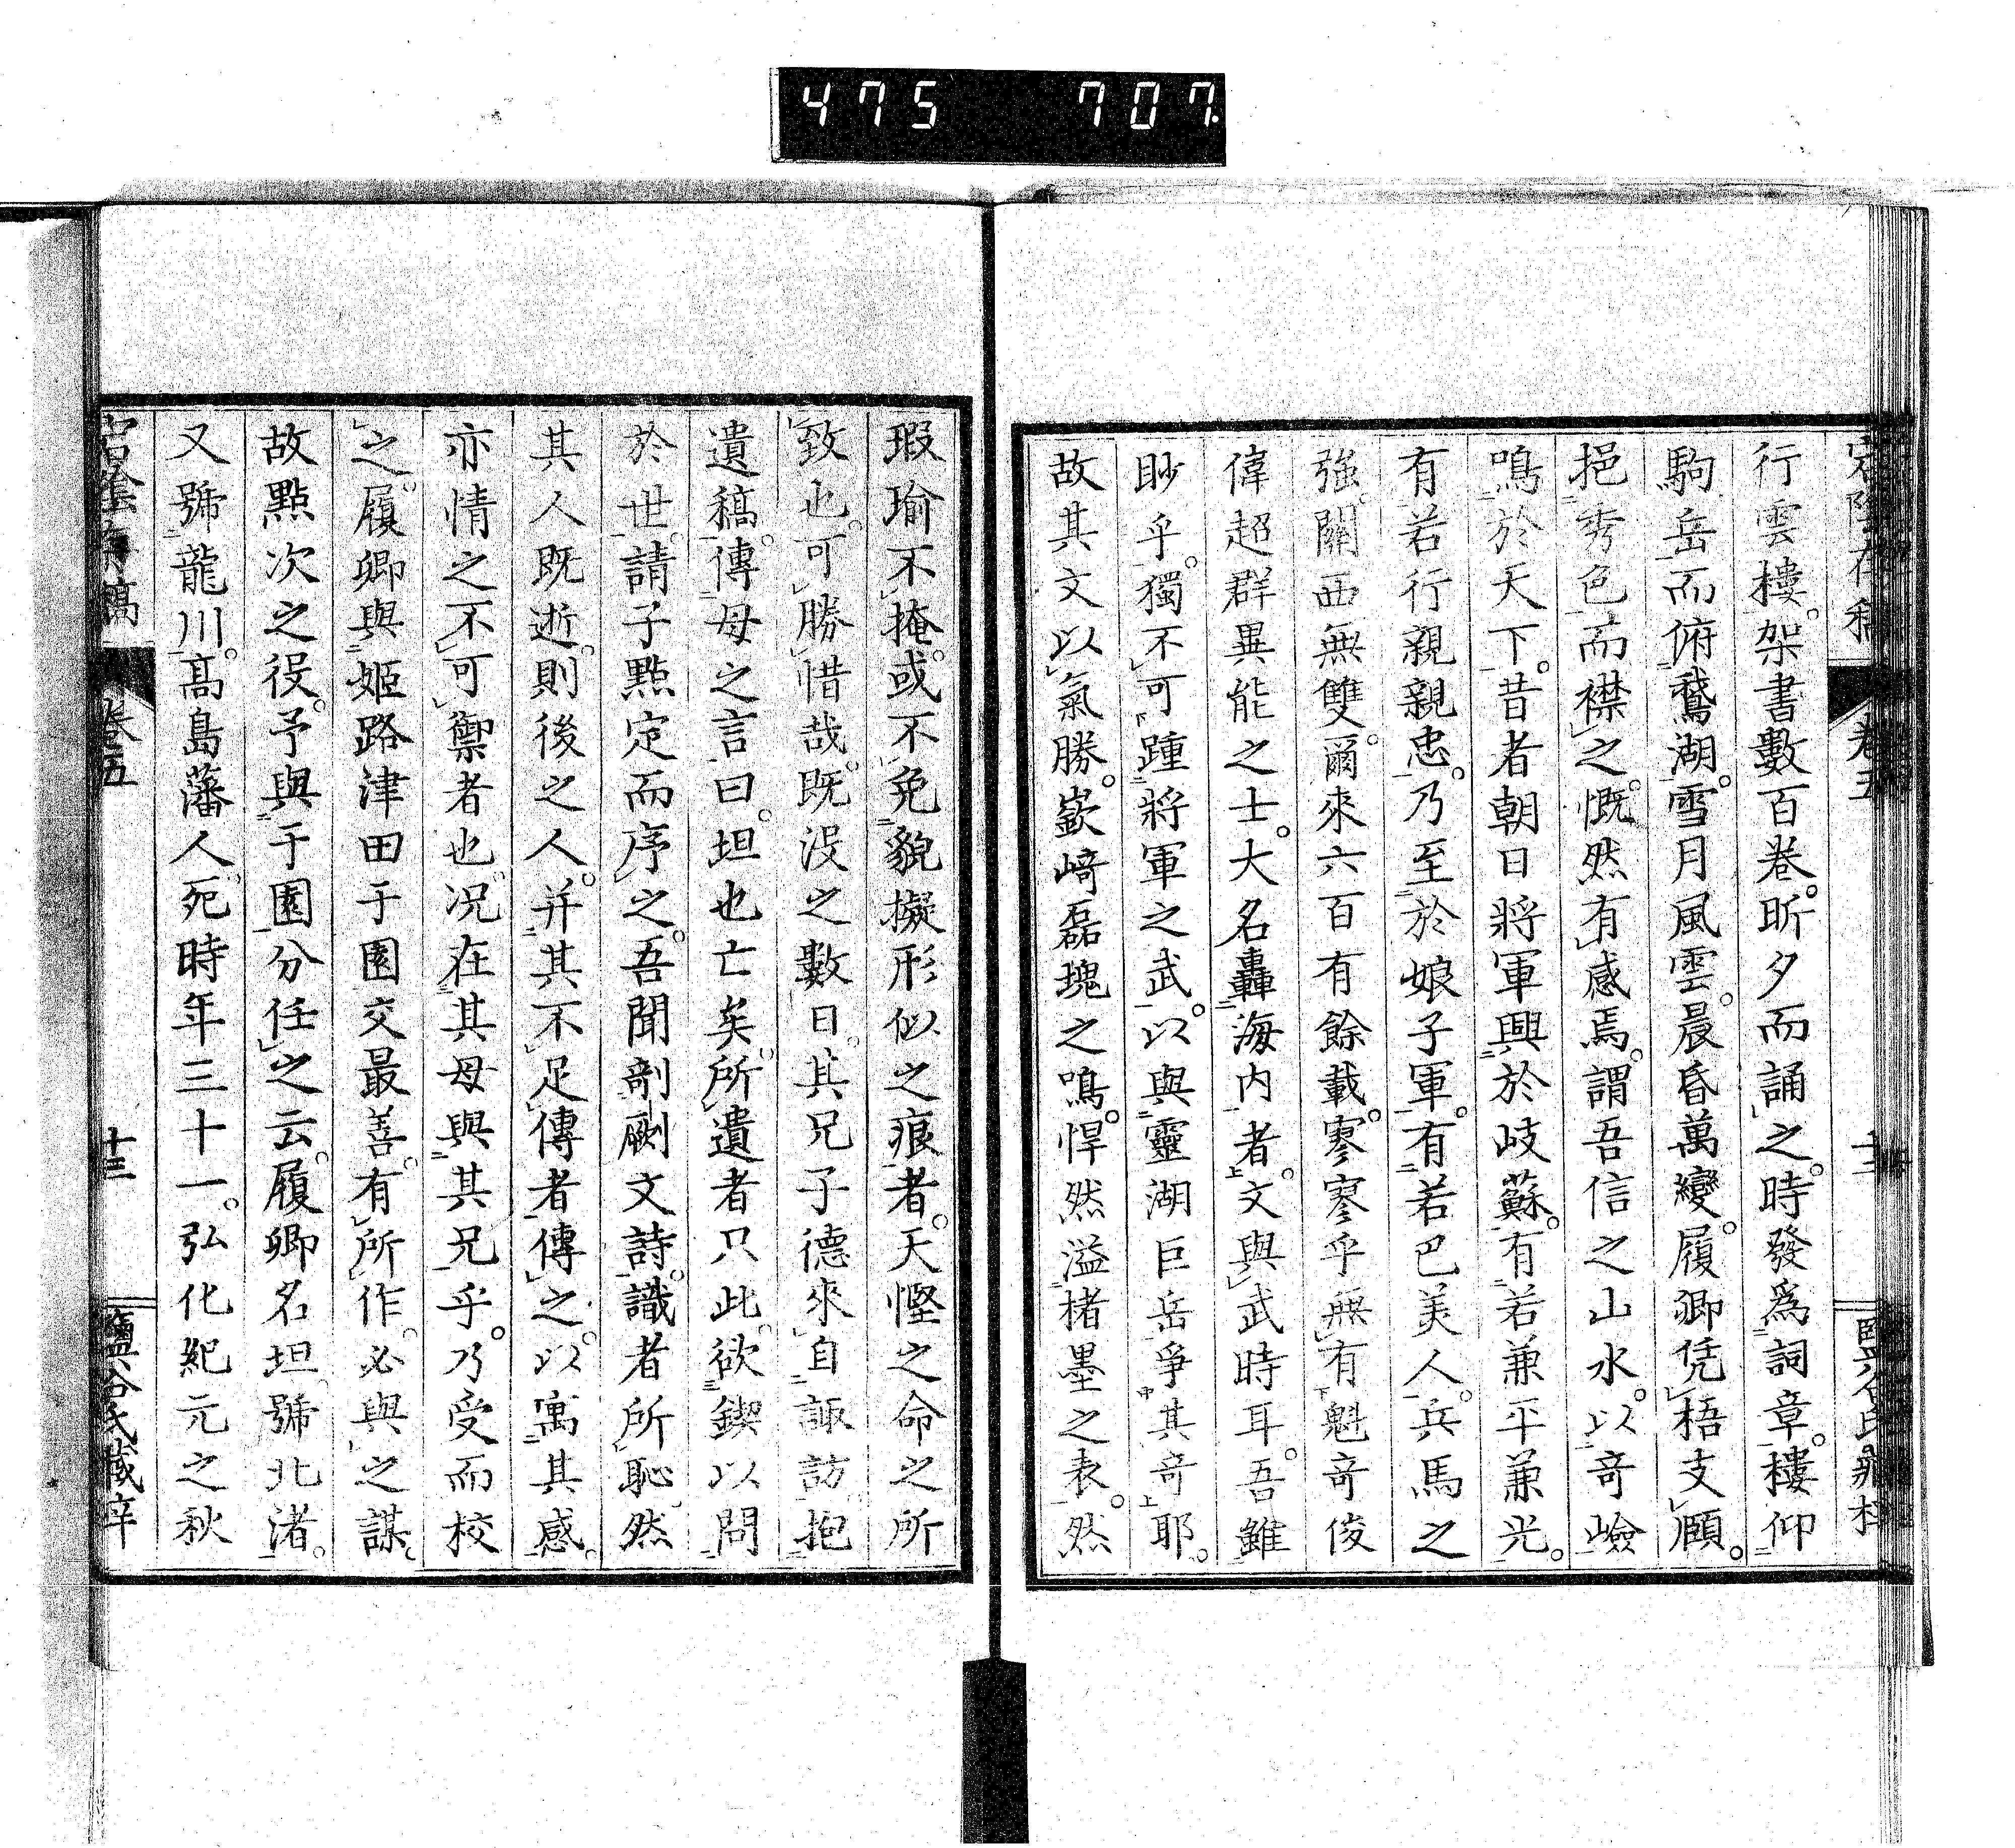 475 707
宕陰存稿 卷五 十二
行雲樓。架書數百卷。昕夕而誦之。時發爲詞章。樓仰
駒岳而俯鵞湖。雪月風雲。晨昏萬變。履卿凭梧支頤。
挹秀色而襟之。慨然有感焉。謂吾信之山水。以奇嶮
鳴於天下。昔者朝日將軍興於岐蘇。有若兼平兼光。
有若行親親忠。乃至於娘子軍。有若巴美人。兵馬之
強。關西無雙。爾來六百有餘載。寥寥乎無有魁奇俊
偉超群異能之士。大名轟海内者。文與武時耳。吾雖
眇乎。獨不可踵將軍之武。以與靈湖巨岳爭其奇耶。
故其文以氣勝。嶔崎磊塊之鳴。悍然溢楮墨之表。然
瑕瑜不掩。或不免貌擬形似之痕者。天慳之命之所
致也。可勝惜哉。既沒之數日。其兄子德來自諏訪抱
遺稿。傳母之言曰。坦也亡矣。所遺者只此。欲鍥以問
於世。請子點定而序之。吾聞剞劂文詩。識者所恥。然
其人既逝。則後之人。并其不足傳者傳之。以寓其感。
亦情之不可禦者也。况在其母與其兄乎。乃受而校
之。履卿與姬路津田于園交最善。有所作。必與之謀。
故點次之役。予與于園分任之云。履卿名坦。號北渚。
又號龍川。高島藩人。死時年三十一。弘化紀元之秋
宕陰存稿 卷五 十三 鹽谷氏藏梓